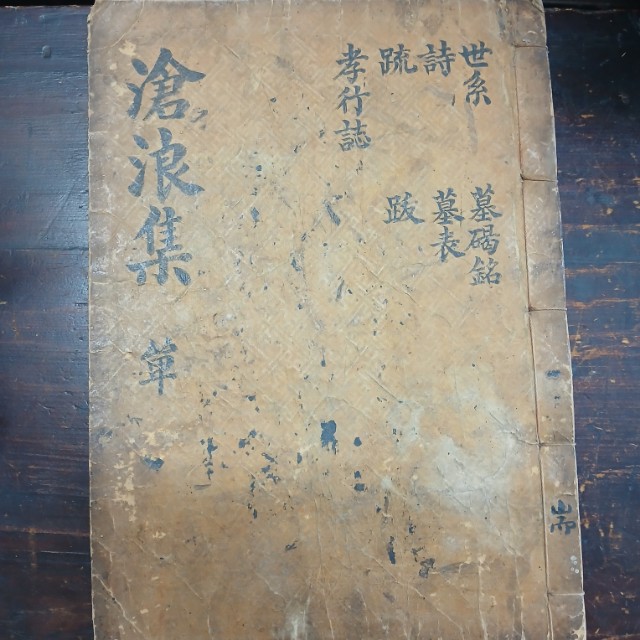 世系 墓碣銘
詩 墓表
疏 跋
孝行誌
滄浪集 單